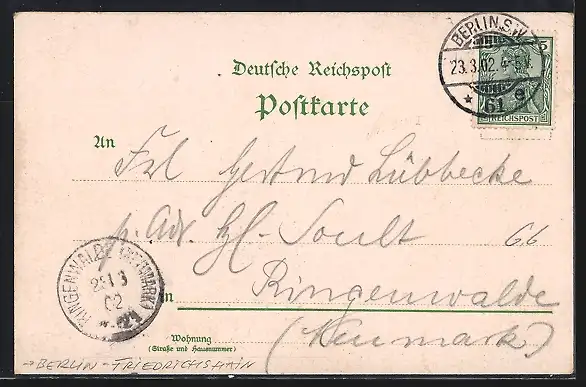 BERLIN. S.W.
23.3.02. 4-5 N.
* 61 e
5
REICHSPOST
Deutsche Reichspost
Postkarte
An
Frl Gertrud Lübbecke
p. Adr. Hl. Soult 66
in
Ringenwalde
(Neumark)
RINGENWALDE (NEUMARK)
3
02
Wohnung
(Straße und Hausnummer)
→ BERLIN - FRIEDRICHSHAIN